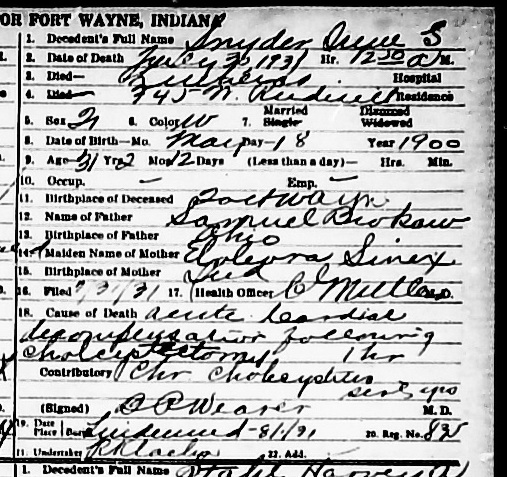 OR FORT WAYNE, INDIANA
1. Decedent's Full Name Snyder Irene S
2. Date of Death July 30 1931 Hr. 12 50 a M.
3. Died— Lutheran Hospital
4. Died— 745 W. Rudisill Residence
5. Sex F 6. Color W 7. Married Single Divorced Widowed
8. Date of Birth—Mo. May Day—18 Year 1900
9. Age 31 Yrs 2 Mos 12 Days (Less than a day)— Hrs. Min.
10. Occup. – Emp. –
11. Birthplace of Deceased Fort Wayne
12. Name of Father Samuel Brokaw
13. Birthplace of Father Ohio
14. Maiden Name of Mother Sinex
15. Birthplace of Mother Ind
16. Filed 7/31/31 17. (Health Officer M.D.
18. Cause of Death acute cardiac
decompensation following
cholecystectomy 1 hr
Contributory Chr cholecystitis
yrs
(Signed) Weaver M. D.
19. Date Place Lindenwood—8/1/31 20. Reg. No. 825
21. Undertaker Klaehn 22. Add.
1. Decedent's Full Name